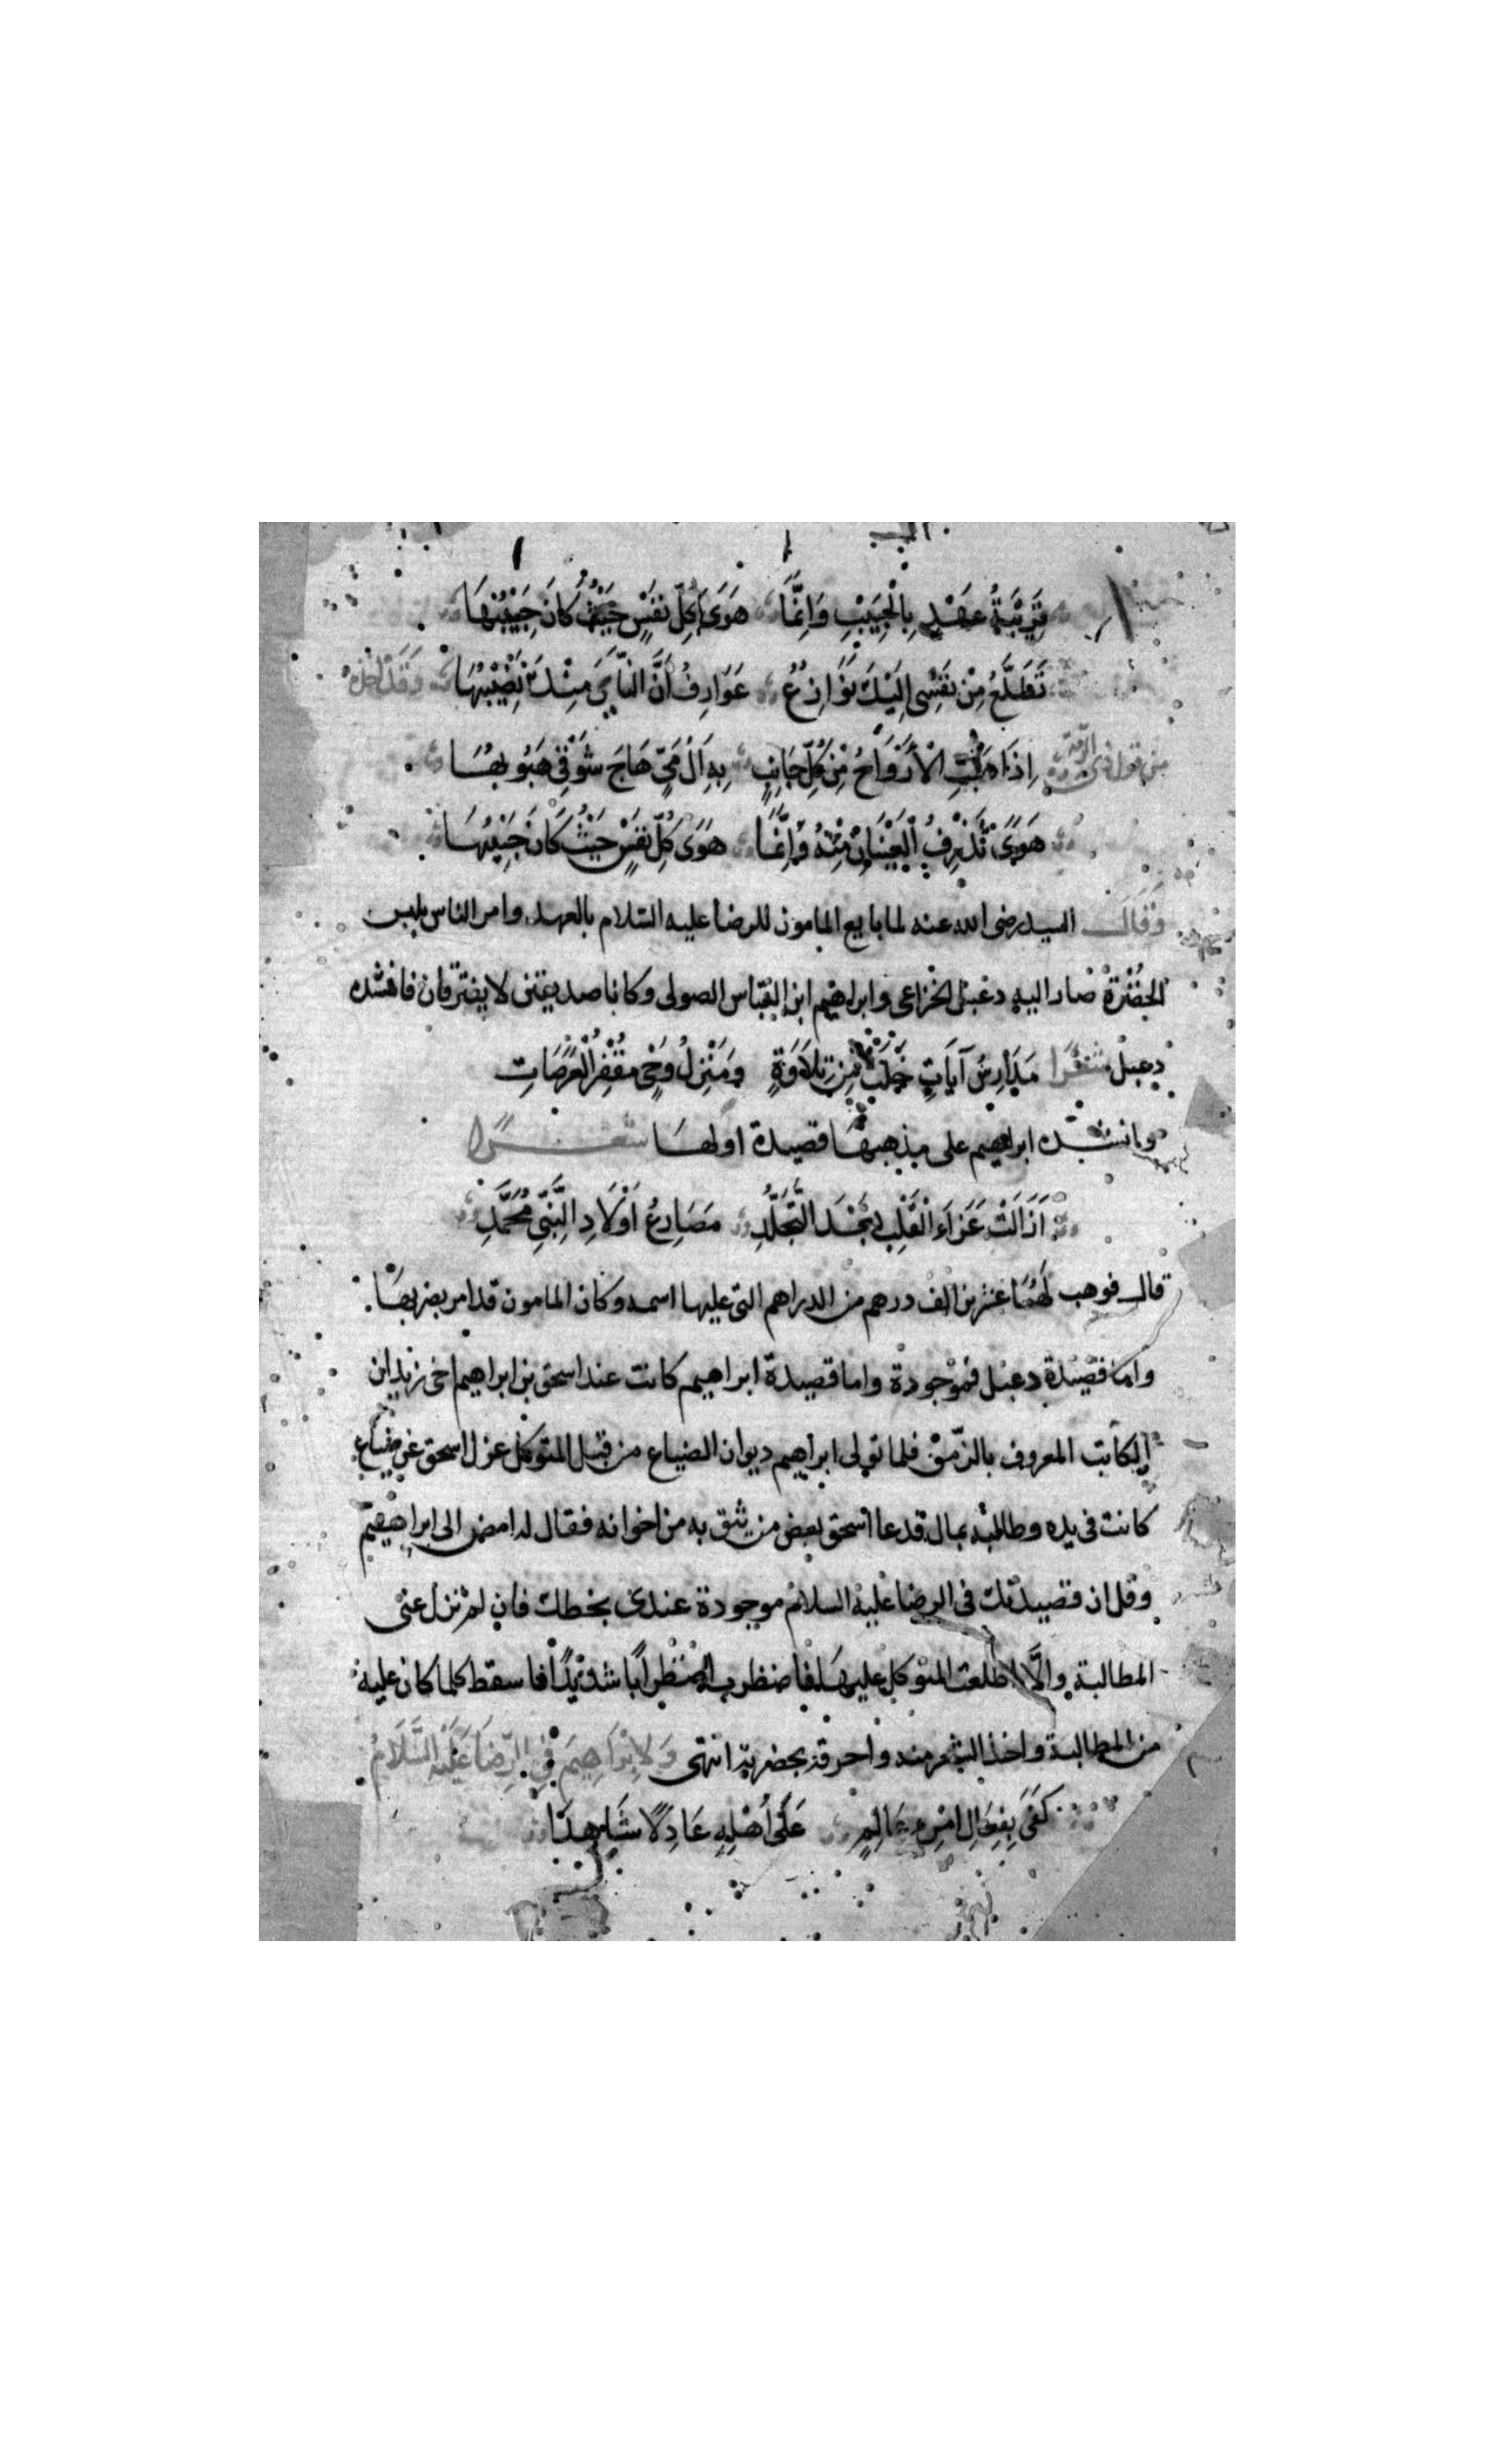 قَرِيْبَةُ عَهْدٍ بِالْحَبِيْبِ وَاِنَّمَا هَوَى كُلِّ نَفْسٍ حَيْثُ كَانَ حَبِيْبُهَا
تَطَلَّعُ مِنْ نَفْسِى اِلَيْكَ نَوَازِعُ عَوَارِفُ اَنَّ النَّأْيَ مِنْكَ نَصِيْبُهَا وَقَدْ اخذه
من قول ذى الرمّة اِذَا هَبَّتِ الْاَرْوَاحُ مِنْ كُلِّ جَانِبٍ بِهِ اَلْ مَيٍّ هَاجَ شَوْقِي هَبُوبُهَا
هَوَىً تَذْرِفُ الْعَيْنَانِ مِنْهُ وَاِنَّمَا هَوَى كُلِّ نَفْسٍ حَيْثُ كَانَ حَبِيْبُهَا
وَقَالَ السيد رضى الله عنه لما بايع المامون للرضا عليه السّلام بالعهد وامر الناس بلبس
الخضرة صار اليه دعبل الخزاعى وابراهيم ابن العبّاس الصولى وكانا صديقين لا يفترقان فانشده
دعبل شعرا مَدَارِسُ آيَاتٍ خَلَتْ مِنْ تِلَاوَةٍ وَمَنْزِلُ وَحْىٍ مُقْفِرُ الْعَرَصَاتِ
وانشده ابراهيم على مذهبها قصيدة اولها شعرًا
اَزَالَتْ عَزَاءَ الْقَلْبِ بَعْدَ التَّجَلُّدِ مَصَارِعُ اَوْلَادِ النَّبِّيِ مُحَمَّدِ
قال فوهب لَهُمَا عشرين الف درهم من الدراهم التى عليها اسمه وكان المامون قد امر بضربها
واما قصيدة دعبل فموجودة واما قصيدة ابراهيم كانت عند اسحق بن ابراهيم اخى زيد ابن
الكاتب المعروف بالزّمن فلما تولى ابراهيم ديوان الضياع من قبل المتوكل عزل اسحق عن ضياع
كانت فى يده وطالبه بمال فدعا اسحق بعض من يثق به من اخوانه فقال له امض الى ابراهيم
وقل ان قصيدتك فى الرضا عليه السلام موجودة عندى بخطك فان لم تزل عنى
المطالبة والّا اطلعت المتوكل عليها فاضظرب اضظرابًا شديدًا فاسقط كلما كان عليه
من المطالبة واخذ الشعر منه واحرقه بحضرته انتهى وَلِابْرَاهِيمَ فِي الرِّضَا عَلَيْهِ السَّلَامُ
كَفَى بِفِعَالِ امْرِءٍ عَالِمٍ عَلَى اَهْلِهِ عَادِلًا شَاهِدًا